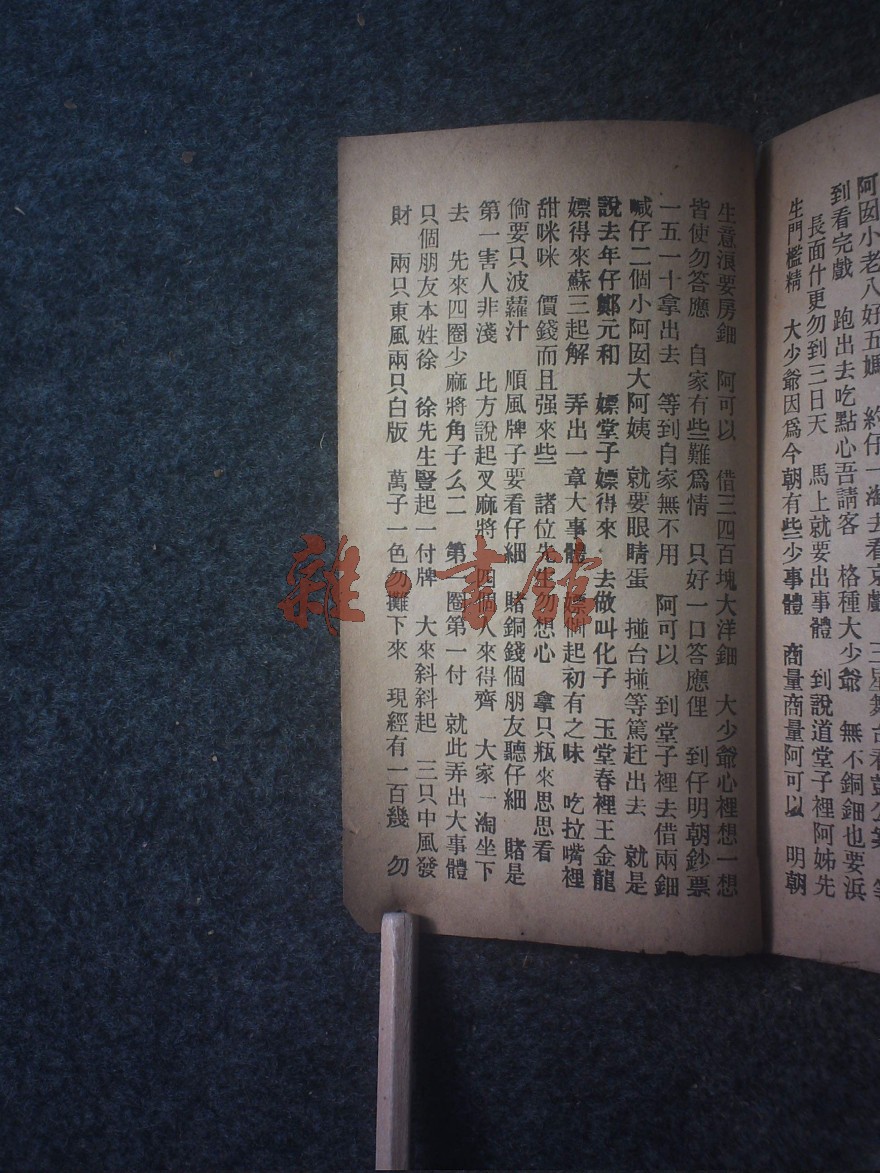 阿囡小老八好五媽　約仔一淘去看京戲　三星舞台看
到看完戲　跑出去吃點心吾請客　格種大少爺　無不銅鈿也要浜
長面什更勿到三日天　馬上就要出事體　到說道堂子裡阿姊先
生門檻精　大少爺因爲今朝有些少事體　商量商量阿可以　明朝
生意浪要房鈿　阿可以　借三四百塊大洋鈿　大少爺心裡想一想
皆使勿答應　自家有些難爲情　只好一口答應俚　到仔明朝鈔票
一五一十拿出去　等到自家無不用　阿可以　到堂子裡去借兩鈿
喊仔二個小阿囡大阿姨　就要眼睛蛋　掽台掽等篤赶出去　就是
說去年仔鄭元和　嫖堂子嫖得來　去做叫化子　玉堂春裡王金龍
嫖得來蘇三起解　弄出一章大事體　嫖個起初有之味　吃拉嘴裡
甜咪咪　價錢而且强來些　諸位先生勿想心　拿只瓶來思思看
倘要只波蘿汁　順風牌子要看仔細　賭銅錢個朋友聽仔細　賭是
第一害人非淺　比方說起叉麻將　四個人來得齊　大家一淘坐下
去　先來四圈少麻將角子么二　第一圈第一付　就此弄出大事體
只個朋友本姓徐　徐先生豎起一付牌　大來斜斜起　三只中風發
財　兩只東風兩只白版　萬子一色勿攤下來　現經有一百幾　勿
雜·書館